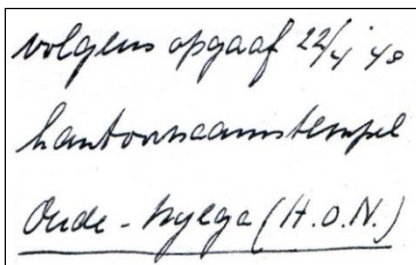 volgens opgaaf 22/4 '48
kantoornaamstempel
Oude-Nyega (H.O.N.)